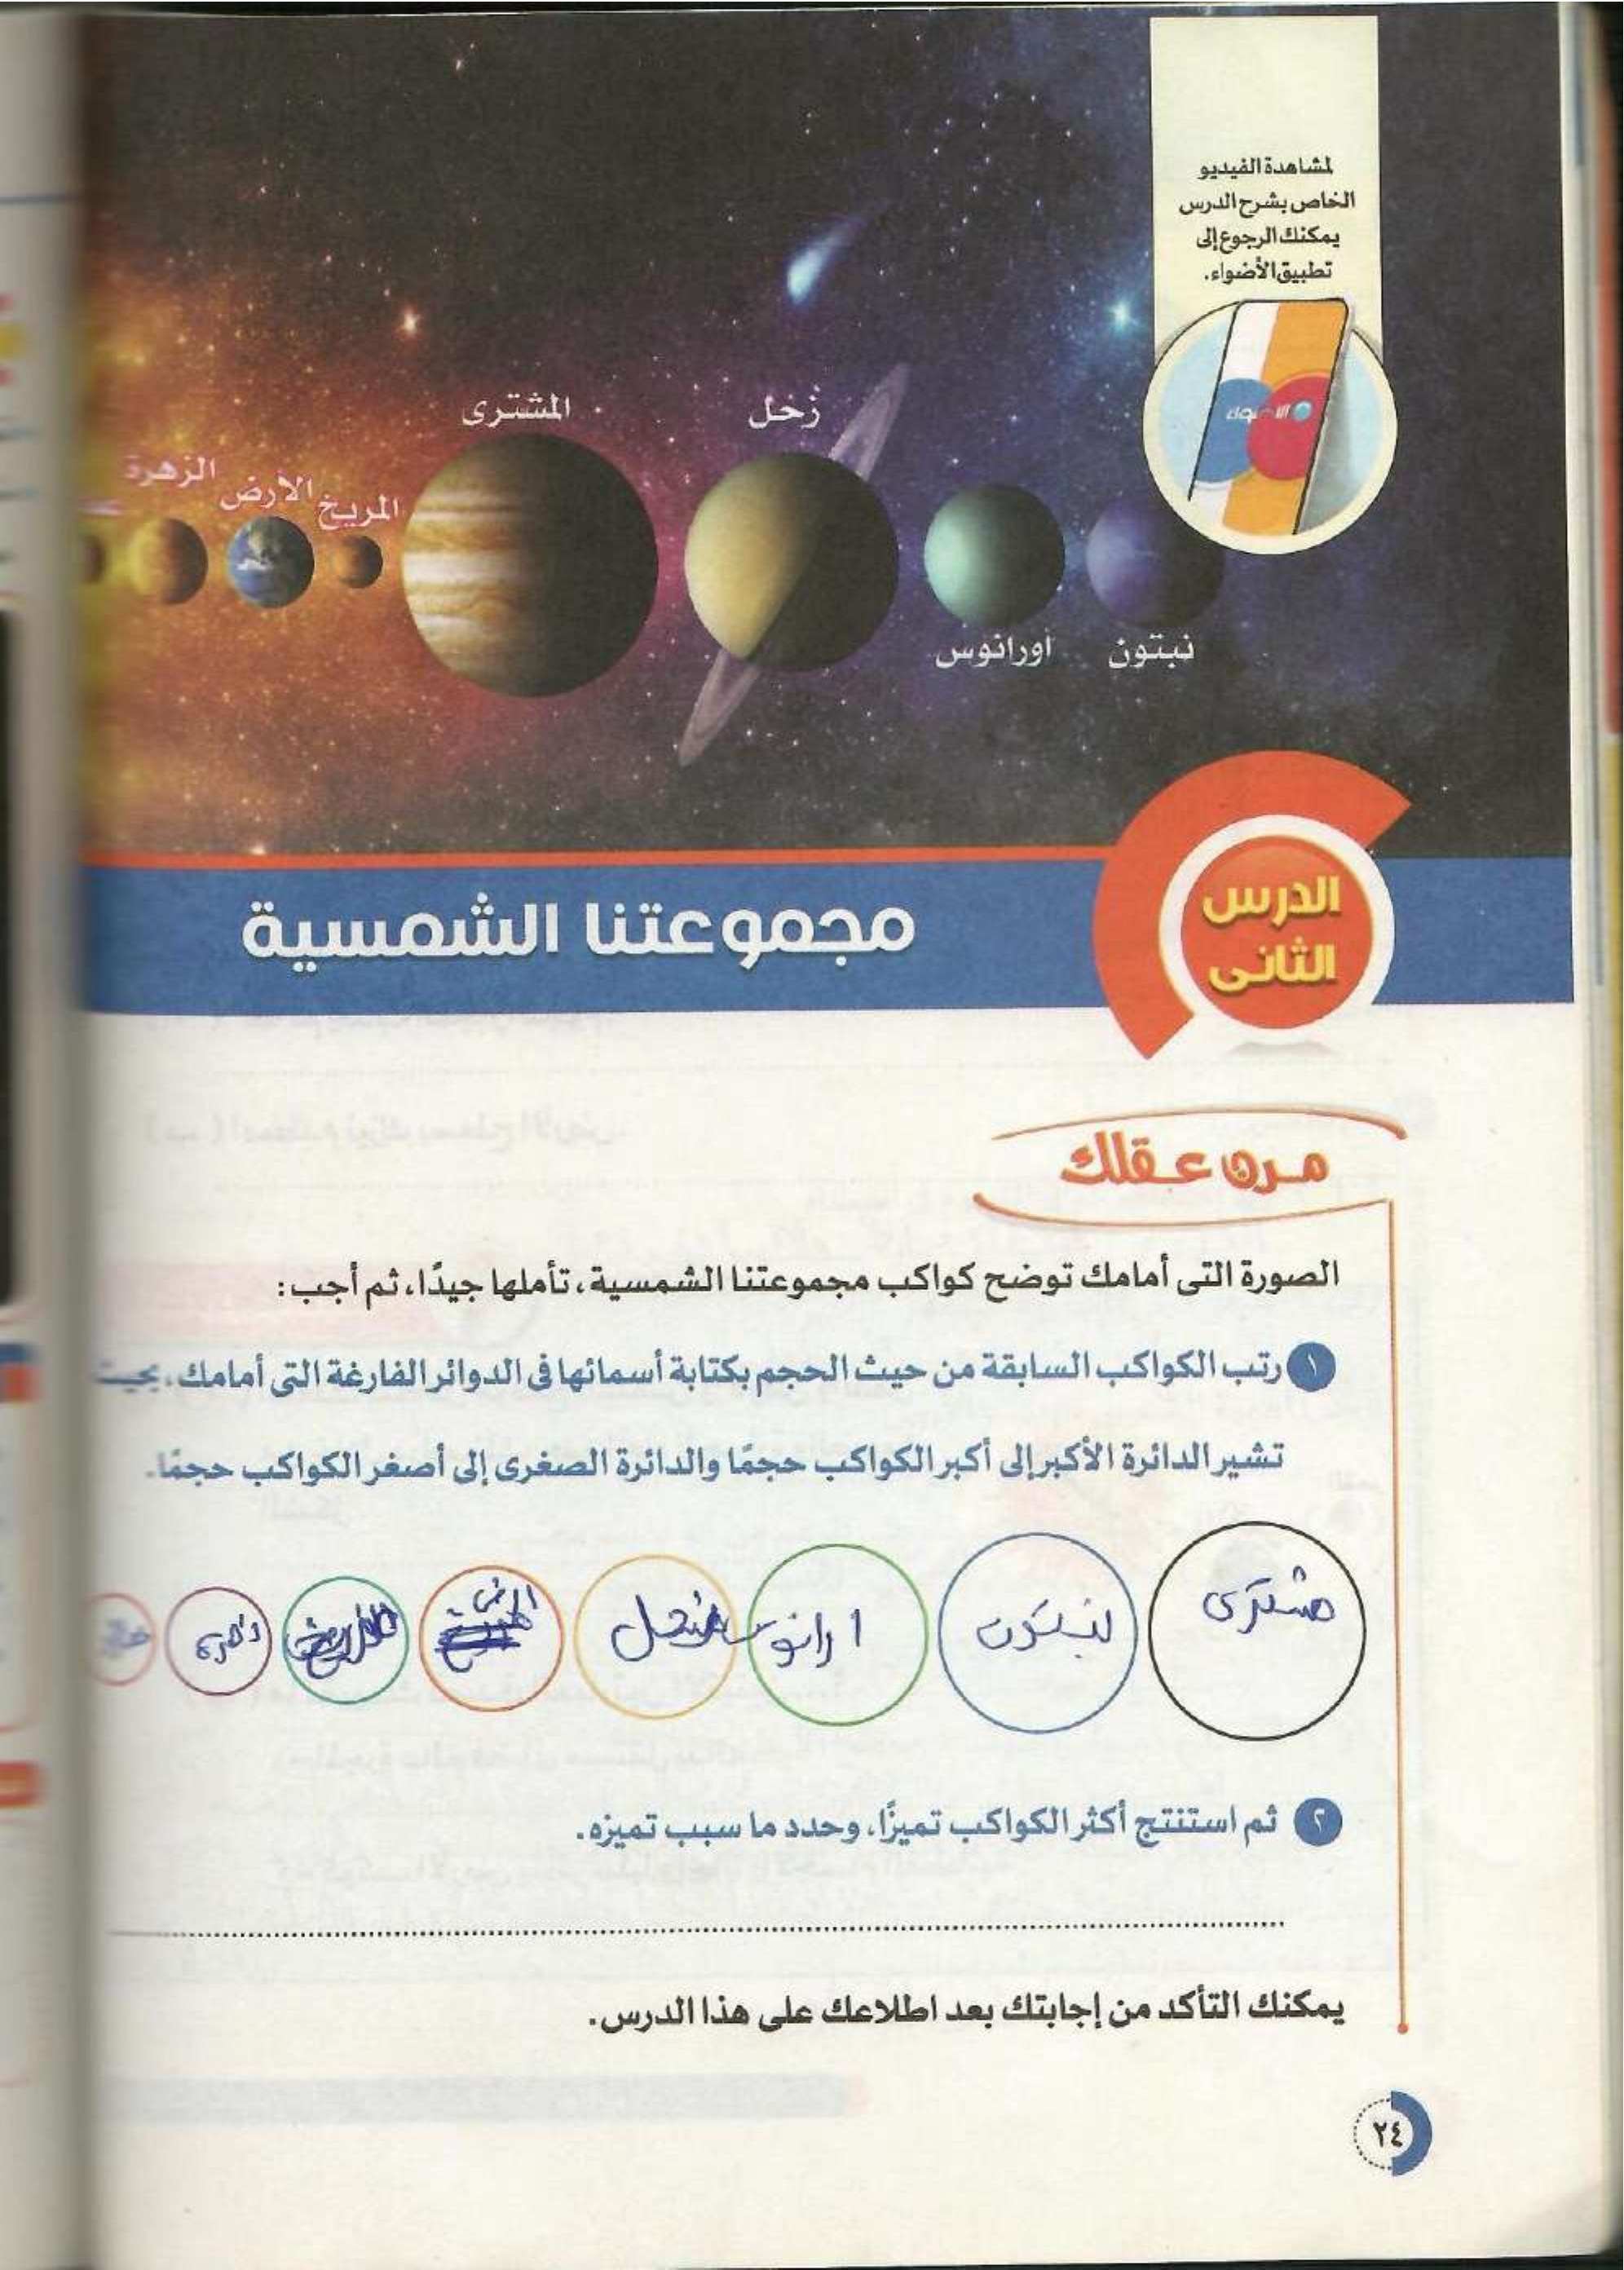 لمشاهدة الفيديو
الخاص بشرح الدرس
يمكنك الرجوع إلى
تطبيق الأضواء.
المشترى
زحل
الزهرة
الأرض
المريخ
اورانوس
نبتون
الدرس
الثانى
مجموعتنا الشمسية
مرن عقلك
الصورة التى أمامك توضح كواكب مجموعتنا الشمسية، تأملها جيدًا، ثم أجب:
١ رتب الكواكب السابقة من حيث الحجم بكتابة أسمائها فى الدوائر الفارغة التى أمامك، بحيث
تشير الدائرة الأكبر إلى أكبر الكواكب حجمًا والدائرة الصغرى إلى أصغر الكواكب حجمًا.
مشترى نبتون ارانوس زحل
٢ ثم استنتج أكثر الكواكب تميزًا، وحدد ما سبب تميزه.
يمكنك التأكد من إجابتك بعد اطلاعك على هذا الدرس.
٢٤